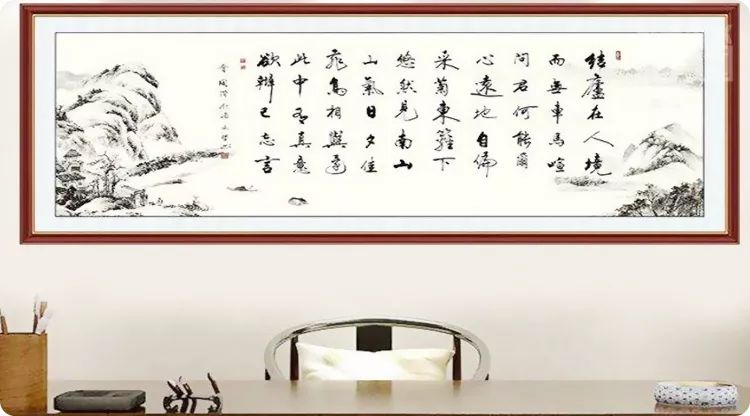 結廬在人境
而無車馬喧
問君何能爾
心遠地自偏
采菊東籬下
悠然見南山
山氣日夕佳
飛鳥相與還
此中有真意
欲辯已忘言